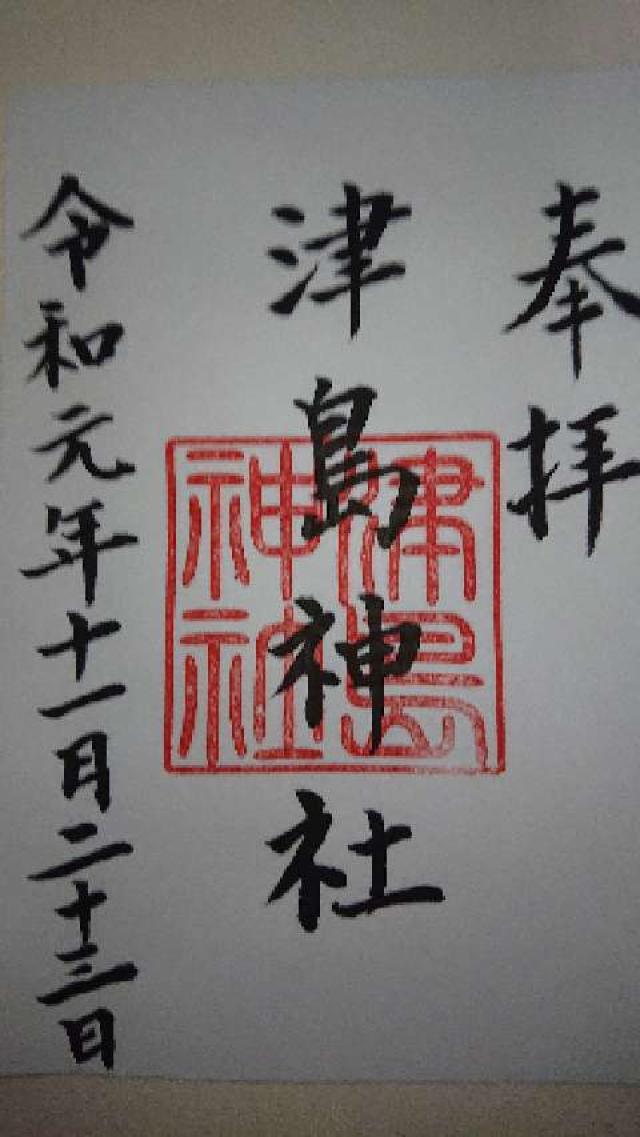 奉拝
津島神社
津島神社
令和元年十一月二十三日